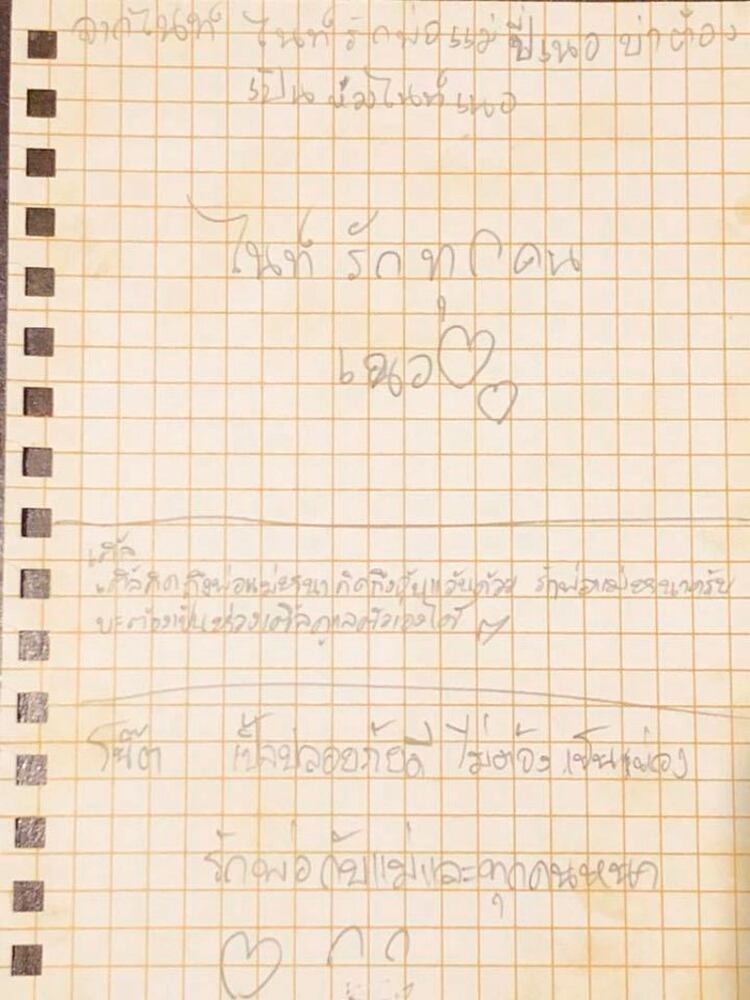 จากไนท์ ไนท์รักพ่อแม่พี่เนอ บ่าต้อง
เป็นห่วงไนท์เนอ
ไนท์ รักทุกคน
เนอ
เติ้ล
เติ้ลคิดถึงพ่อแม่ คิดถึง ด้วย รักพ่อแม่
บะต้องเป็นห่วงเติ้ลดูแลตัวเองได้
โน๊ต ปลอยภัยดี ไม่ต้องเป็นห่วง
รักพ่อกับแม่และทุกคนหนา